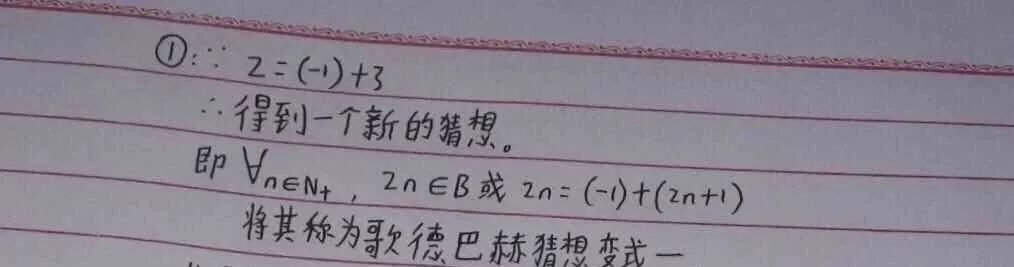 ①:∵ 2=(-1)+3
∴得到一个新的猜想。
即 ∀n∈N+, 2n∈B或 2n=(-1)+(2n+1)
将其称为歌德巴赫猜想变式一